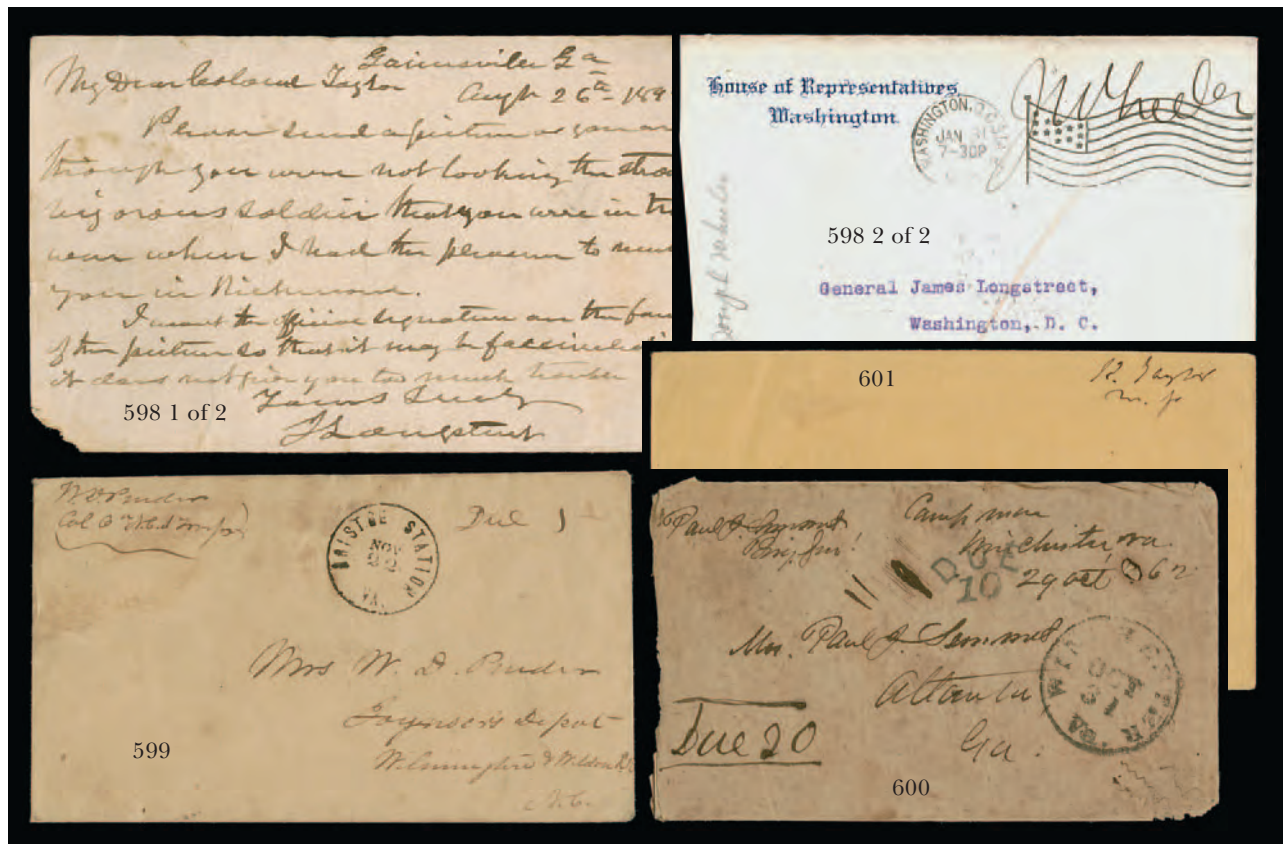 Gainesville Ga
My Dear Colonel Taylor Augt 26th 189
Please send a picture as you are
though you were not looking the
vigorous soldier that you were in the
war when I had the pleasure to meet
you in Richmond.
I want the signature on the face
of the picture so that it may be
it does not give you too much trouble
Yours Truly
J Longstreet
598 1 of 2
House of Representatives
Washington
J Wheeler
WASHINGTON, D.C.
JAN 31
7-30P
598 2 of 2
Joseph Wheeler
General James Longstreet,
Washington, D. C.
601
R. Taylor
M. P.
W D Pender
Col
BRISTOE STATION
NOV
22
VA.
Due
Mrs W. D. Pender
Joyner's Depot
Wilmington & Weldon
N.C.
599
Paul J. Semmes
Brig. Gen!
Camp near
Winchester, Va.
29 Oct 62
DUE
10
Mrs. Paul J. Semmes
Atlanta
Ga.
Due 20
WINCHESTER VA
OCT
31
600